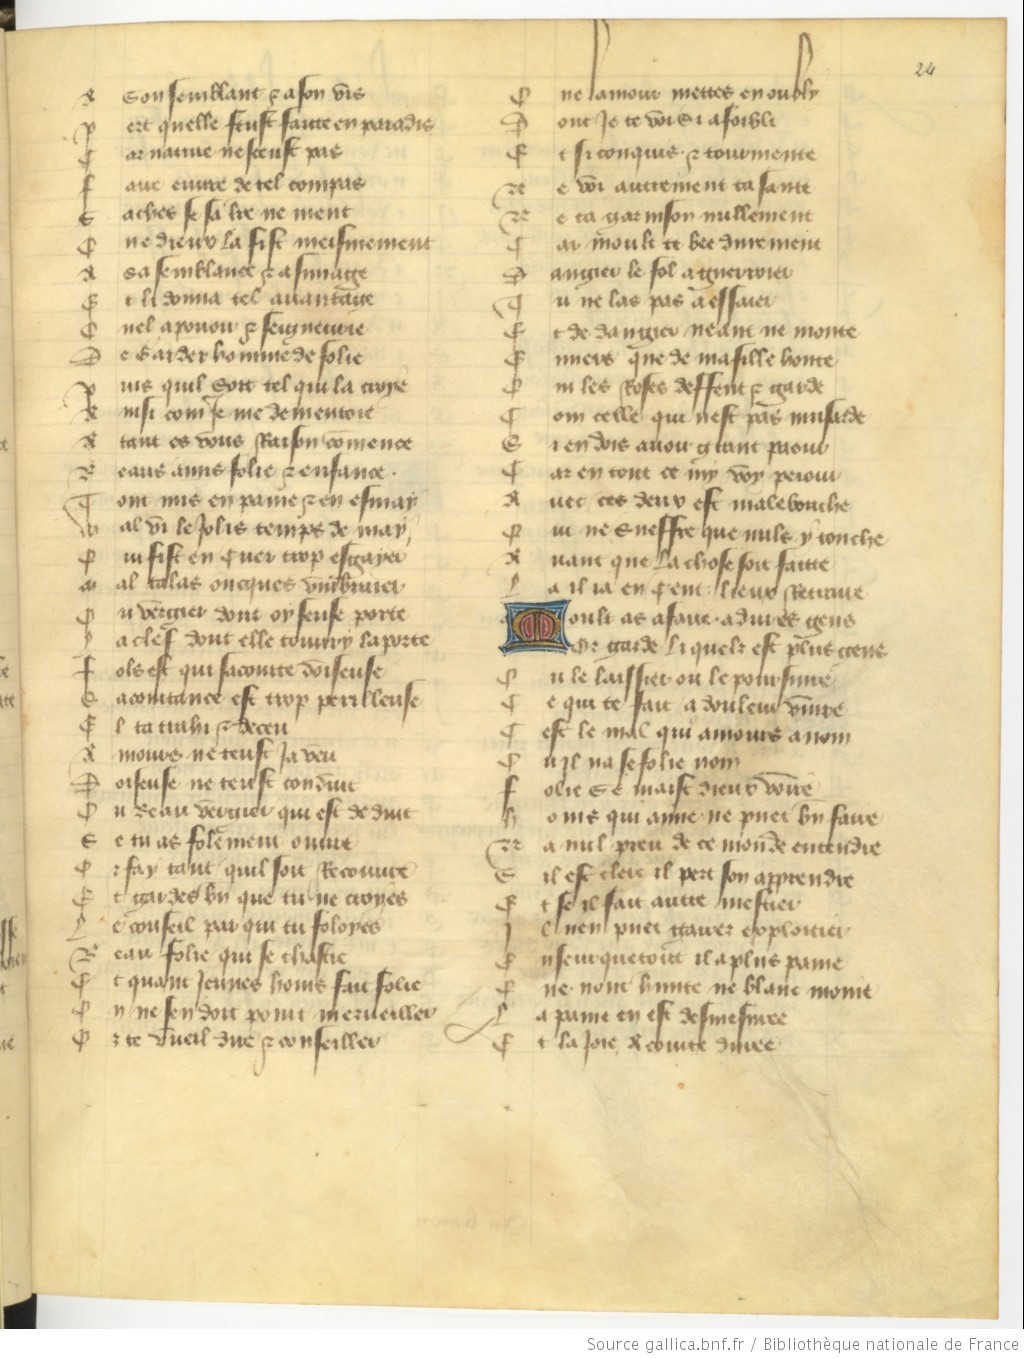 24
A son semblant & a son vis
Pert quelle feust faicte en paradis
Car nature ne sceust pas
Faire euvre de tel compas
Saches se la lre ne ment
Que dieux la fist meismement
A sa semblance & a symage
Et li donna tel avantage
Quel a povoir & seigneurie
De garder homme de folie
Puis quil soit tel qui la croye
Ainsi com Je me dementoie
Atant es vous Raison comence
Beaus amis folie & enfance
Tont mis en paine & en esmay
Mal vi le Jolis temps de may
Qui fist en cuer trop esgayer
Mal talas oncques umbraier
Du vergier dont oyseuse porte
La clef dont elle touvry la porte
Fols est qui sacointe doiseuse
Sacointance est trop perilleuse
El ta trahi & deceu
Amours ne teust Ja veu
Doiseuse ne teust conduit
Du Beau vergier qui est deduit
Se tu as folement ouvre
Or fay tant quil soit Recouvre
Et gardes bn que tu ne croyes
Le conseil par qui tu foloyes
Beau folie qui se chastie
Et quant Jeunes homs fait folie
On ne sen doit point merveiller
Or te vueil dire & conseiller
Que lamour mettes en oubly
Dont Je te voi si afoibli
Et si conquis & tourmente
Je voi autrement ta sante
Ne ta garison nullement
Car moult te bee durement
Dangier le fol a guerroier
Tu ne las pas a essaier
Et de dangier neant ne monte
Envers que de ma fille honte
Qui les Roses deffent & garde
Com celle qui nest pas musarde
Si en dois avoir grant paour
Car en tout ce ny voy peiour
Avec ces deux est malebouche
Qui ne sueffre que nuls y touche
Avant que la chose soit faicte
La il ia en Cent lieux Retraite
Moult as a faire a dures gens
Or garde li quelz est plus gens
Ou le laissier ou le poursuivre
Ce qui te fait a douleur vivre
Cest le mal qui amours a nom
Ou Il na se folie nom
Folie se maist dieux voire
Homs qui aime ne puet bn faire
Na nul preu de ce monde entendre
Sil est clerc il pert son apprendre
Et se il fait autre mestier
Il nen puet gaires exploitier
Enseurquetout il a plus paine
Que nont hermite ne blanc moine
La paine en est desmesuree
Et la Joie a courte duree
Source gallica.bnf.fr / Bibliothèque nationale de France